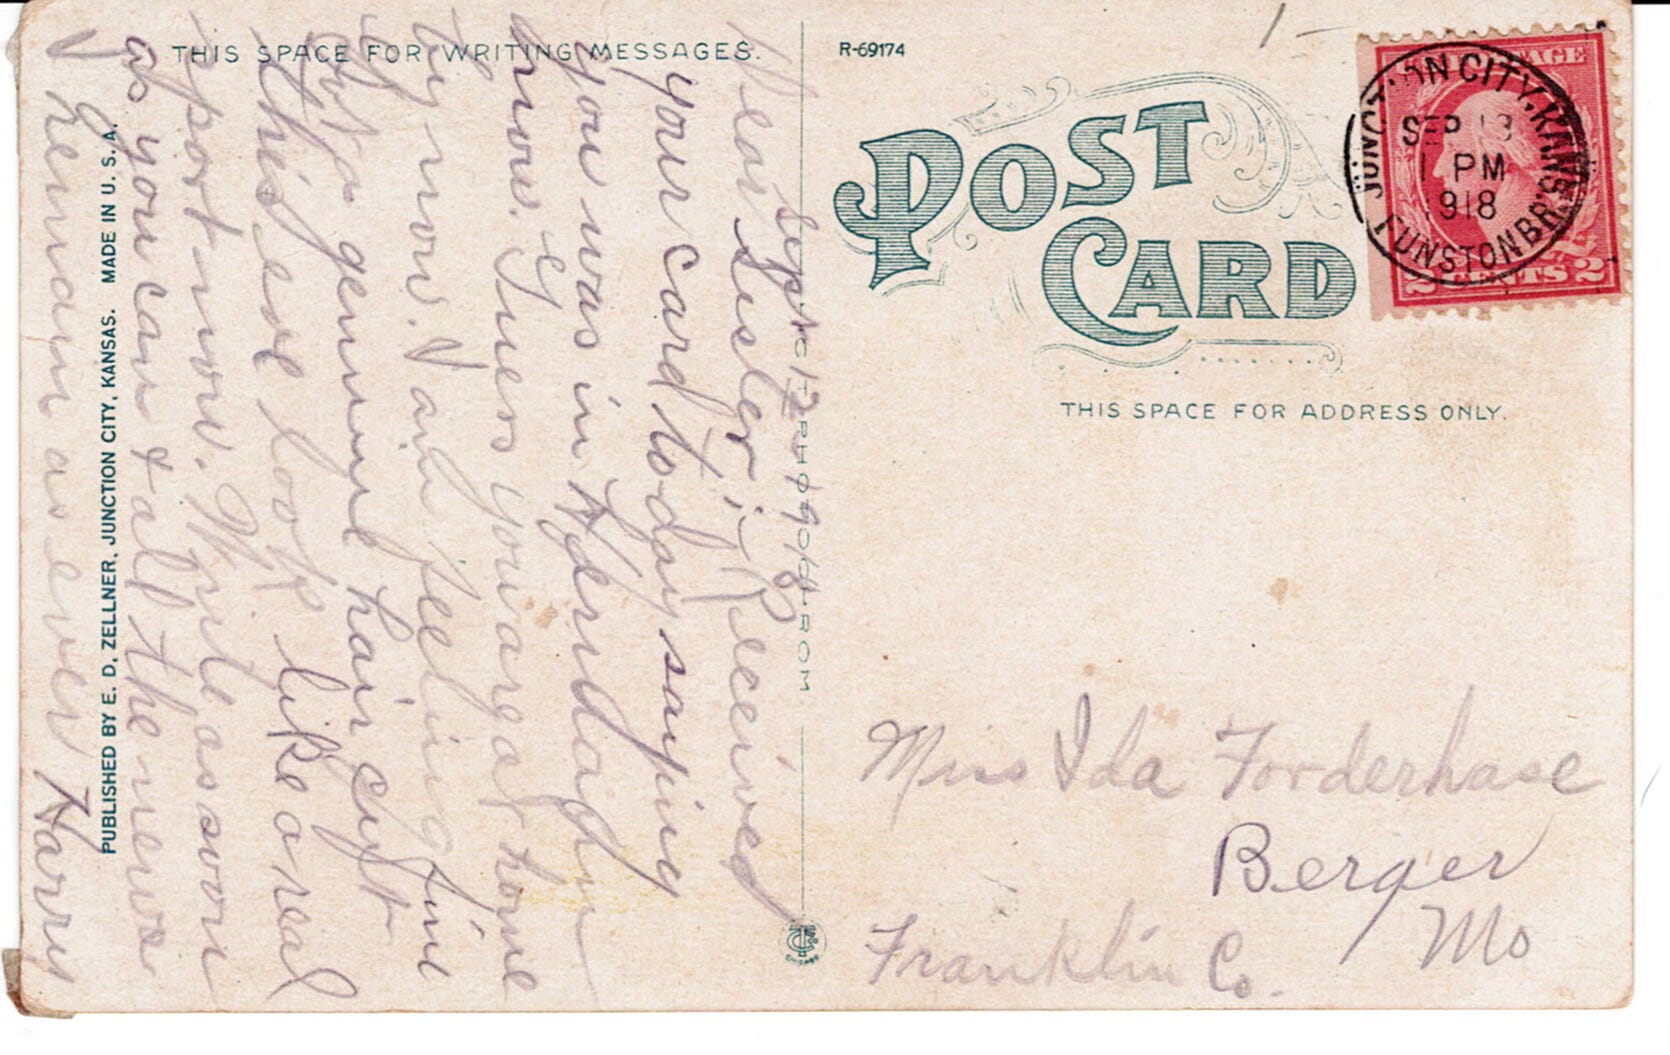 THIS SPACE FOR WRITING MESSAGES.
R-69174
POST
CARD
THIS SPACE FOR ADDRESS ONLY.
POSTAGE
2 CENTS 2
JUNCTION CITY, KANS.
SEP 13
1 PM
1918
FUNSTON BR.
Sept 12 1918
Dear Sister; Received
your card today saying
you was in
know. Guess you are at home
by now. I am feeling fine
got a genuine hair cut
this eve look like a real
sport now. Write as soon
as you can & all the news
I remain as ever Harry
PUBLISHED BY E. D. ZELLNER, JUNCTION CITY, KANSAS. MADE IN U. S. A.
CHICAGO
Miss Ida Forderhase
Berger
Mo
Franklin Co.